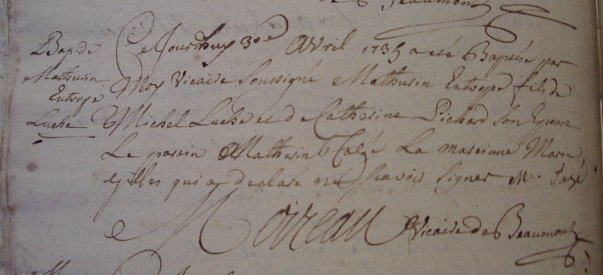 de Beaumont
Bap. de
Mathurin
Entrope
Luche
Ce Jourdhuy 30e Avril 1735 a eté Baptisé par
Moy Vicaire Soussigné Mathurin Entrope fils de
Michel Luche et de Catherine Pichard son Epouse
Le parein Mathurin La mareinne Marie
Gilles qui a declaré ne scavoir signer
Moreau Vicaire de Beaumont